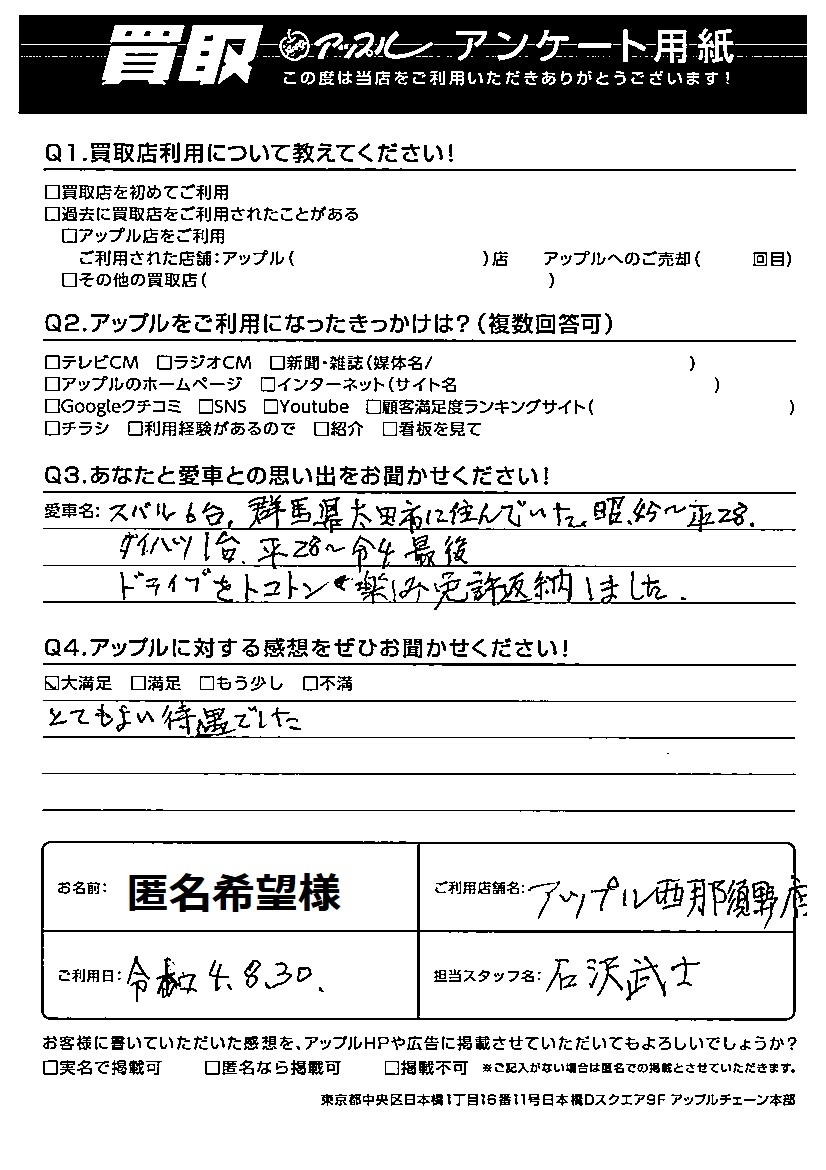 買取 アップル アンケート用紙
この度は当店をご利用いただきありがとうございます!
Q1.買取店利用について教えてください!
□買取店を初めてご利用
□過去に買取店をご利用されたことがある
□アップル店をご利用
ご利用された店舗:アップル( )店 アップルへのご売却( 回目)
□その他の買取店( )
Q2.アップルをご利用になったきっかけは?(複数回答可)
□テレビCM □ラジオCM □新聞・雑誌(媒体名/ )
□アップルのホームページ □インターネット(サイト名 )
□Googleクチコミ □SNS □Youtube □顧客満足度ランキングサイト( )
□チラシ □利用経験があるので □紹介 □看板を見て
Q3.あなたと愛車との思い出をお聞かせください!
愛車名: スバル6台、群馬県太田市に住んでいた。昭.45〜平28.
ダイハツ1台、平28〜令4 最後
ドライブをトコトン楽しみ免許返納しました.
Q4.アップルに対する感想をぜひお聞かせください!
☑大満足 □満足 □もう少し □不満
とてもよい待遇でした
お名前: 匿名希望様
ご利用店舗名: アップル西那須野店
ご利用日: 令和4.8.30.
担当スタッフ名: 石沢武士
お客様に書いていただいた感想を、アップルHPや広告に掲載させていただいてもよろしいでしょうか?
□実名で掲載可 □匿名なら掲載可 □掲載不可 ※ご記入がない場合は匿名での掲載とさせていただきます。
東京都中央区日本橋1丁目16番11号日本橋Dスクエア9F アップルチェーン本部